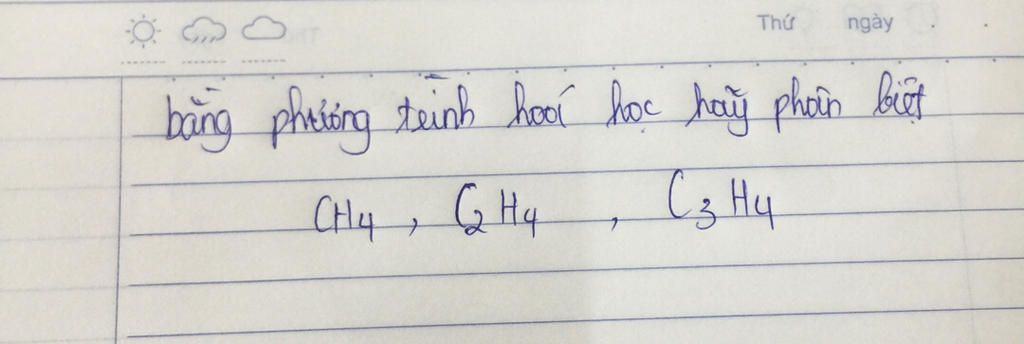 Thứ ngày
bằng phương trình hoá học hãy phân biệt
CH4, C2H4, C3H4